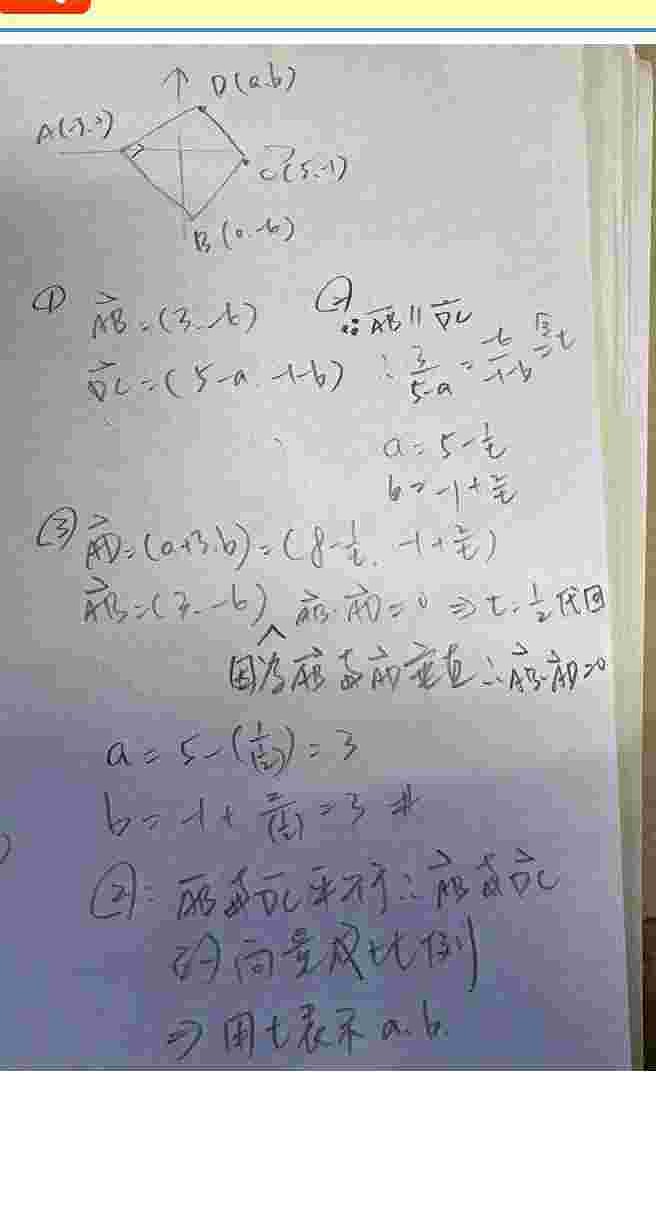 D(a.b)
A(-3.0)
C(5.-1)
B(0.-6)
① AB=(3.-6)
DC=(5-a.-1-b)
② ∵AB∥DC
∴3/(5-a)=-6/(-1-b)=t
a=5-3/t
b=-1+6/t
③ AD=(a+3.b)=(8-3/t.-1+6/t)
AB=(3.-6) AB·AD=0⇒t=3/2代回
因為AB與AD垂直∴AB·AD=0
b=-1+
=3 #
②:AB與DC平行∴AB與DC
的向量成比例
⇒用t表示a.b.